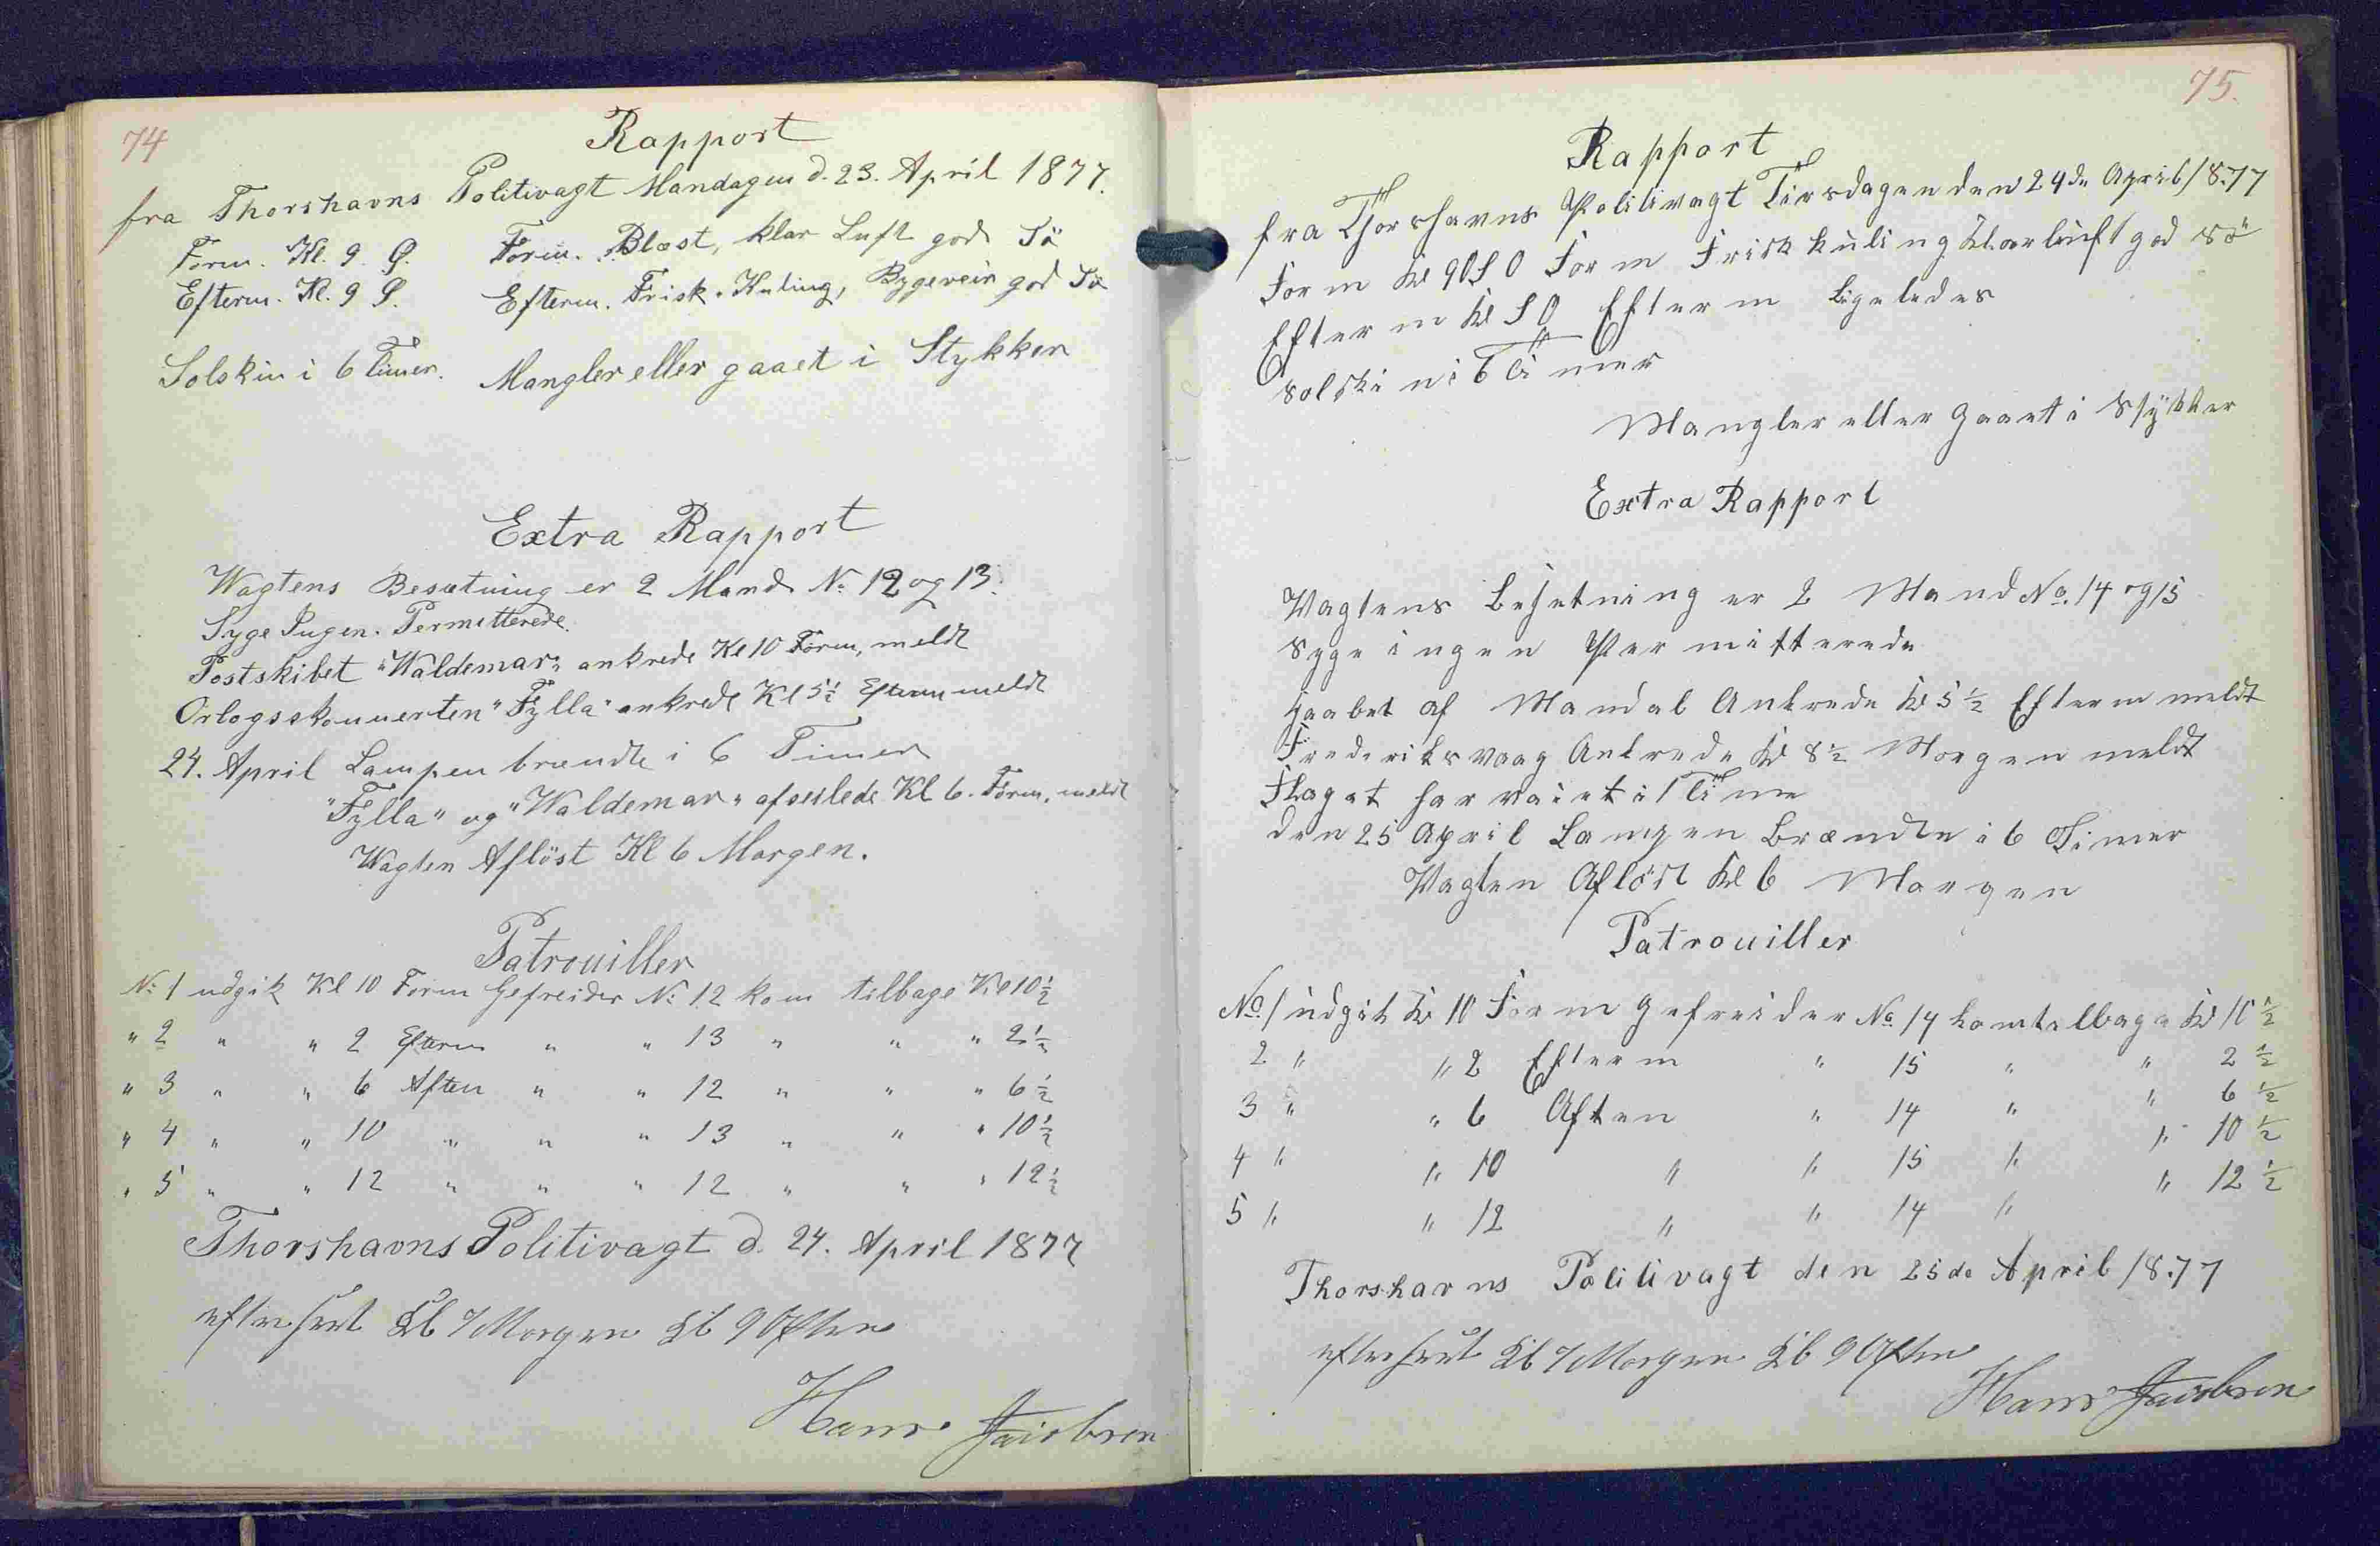 74
Rapport
fra Thorshavns Politivagt Mandagen d. 23. April 1877.
Form. Kl. 9. Ø. Form. Blæst, klar Luft god Sö
Efterm. Kl. 9 Ø. Efterm. Frisk-Kuling, Bygeveir god Sö
Solskin i 6 Timer. Mangler eller gaaet i Stykker
Extra Rapport
Wagtens Besætning er 2 Mand No 12 og 13.
Syge Ingen. Permitterede.
Postskibet "Waldemar" ankrede Kl 10 Form, meldt
Orlogsskonnerten "Fylla" ankrede Kl 5½ Efterm meldt
24. April Lampen brændte i 6 Timer
"Fylla" og "Waldemar" afseilede Kl 6. Form, meldt
Wagten Aflöst Kl 6 Morgen.
Patrouiller
No 1 udgik Kl 10 Form Gefreider No 12 kom tilbage Kl 10½
" 2 " " 2 Efterm " " 13 " " " 2½
" 3 " " 6 Aften " " 12 " " " 6½
" 4 " " 10 " " " 13 " " " 10½
" 5 " " 12 " " " 12 " " " 12½
Thorshavns Politivagt d. 24. April 1877
efterseet Kl 7 Morgen Kl 9 Aften
Hans
75.
Rapport
fra Thorshavns Politivagt Tirsdagen den 24de April 1877
Form Kl 9 Form Frisk kuling Klarluft god Sö
Efterm Kl Efterm ligeledes
Solskin i 6 Timer
Mangler eller Gaaet i Stykker
Extra Rapport
Vagtens Besetning er 2 Mand No. 14 og 15
Syge ingen Permitterede
Haabet af Mandal Ankrede Kl 5½ Efterm meldt
Frederiksvaag Ankrede Kl 8½ Morgen meldt
Flaget har vaiet i 1 Time
den 25 April Lampen Brændte i 6 Timer
Vagten Aflöst Kl 6 Morgen
Patrouiller
No. 1 udgik Kl 10 Form Gefreider No. 14 kom telbage Kl 10½
2 " " 2 Efterm " 15 " " 2½
3 " " 6 Aften " 14 " " 6½
4 " " 10 " " 15 " " 10½
5 " " 12 " " 14 " " 12½
Thorshavns Politivagt den 25de April 1877
efterseet Kl 7 Morgen Kl 9 Aften
Hans